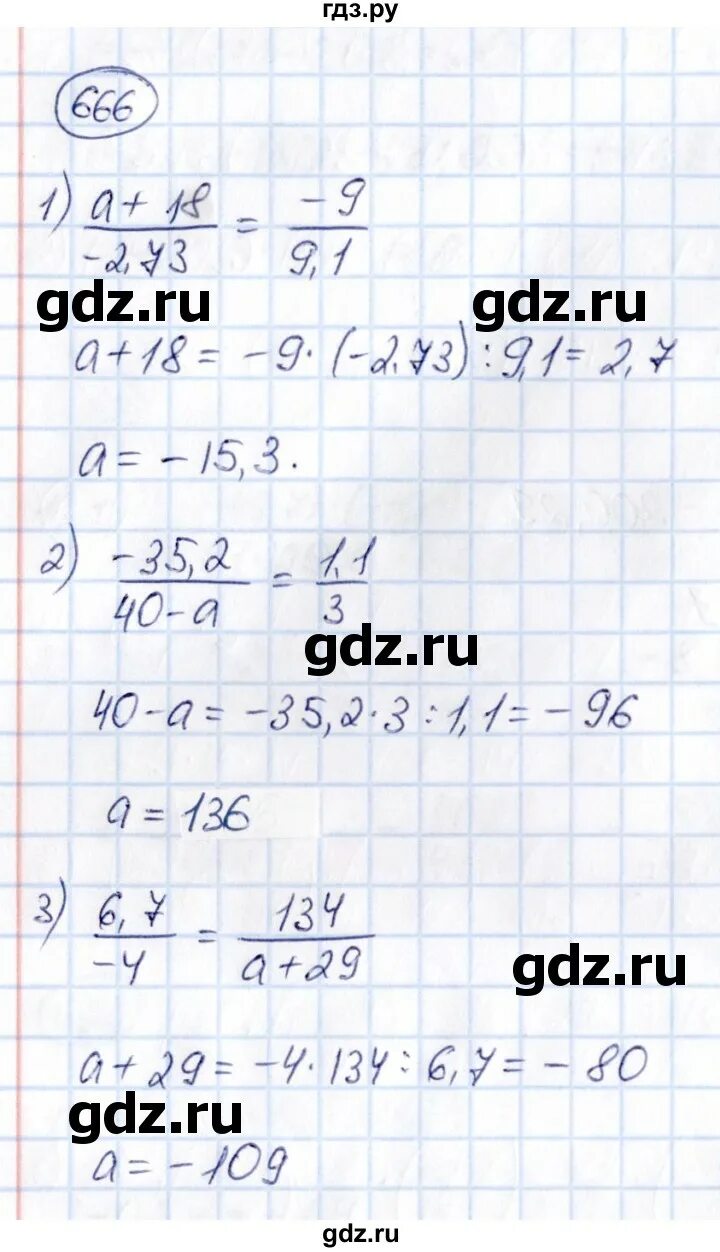 гдз.ру
666
1) a + 18 / -2,73 = -9 / 9,1
gdz.ru gdz.ru
a + 18 = -9 · (-2,73) : 9,1 = 2,7
a = -15,3.
2) -35,2 / 40 - a = 1,1 / 3
gdz.ru
40 - a = -35,2 · 3 : 1,1 = -96
a = 136
3) 6,7 / -4 = 134 / a + 29
gdz.ru
a + 29 = -4 · 134 : 6,7 = -80
gdz.ru
a = -109
gdz.ru